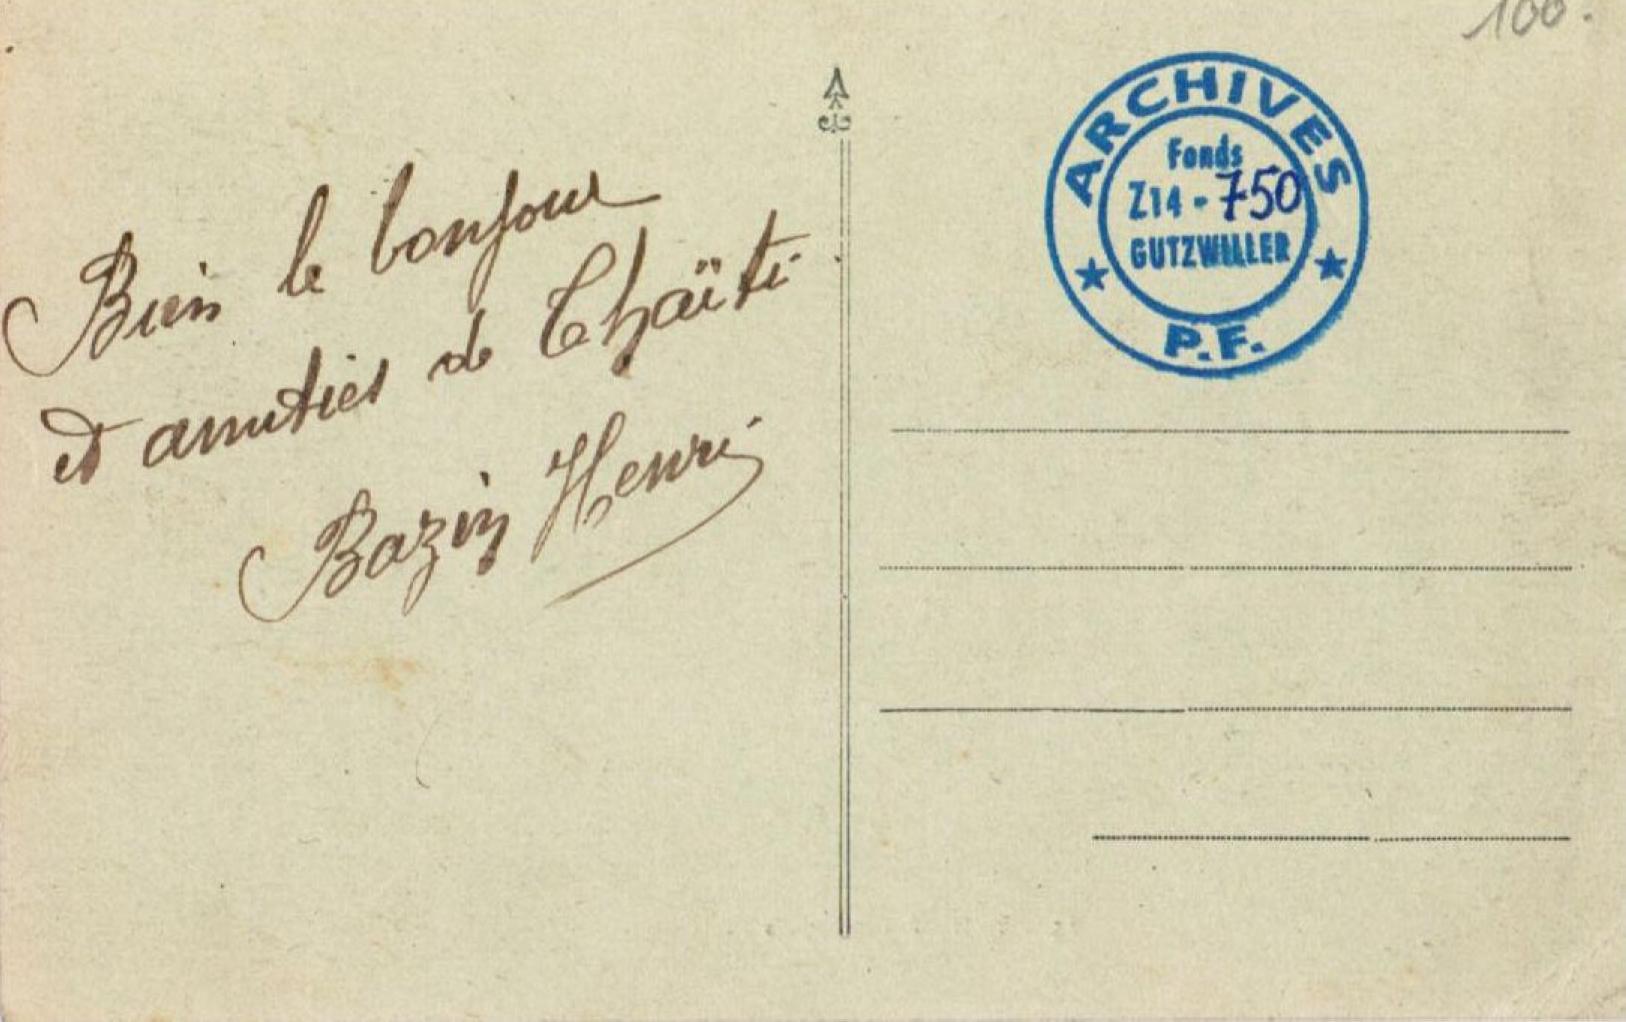 100.
Bien le bonjour
et amitiés de Thaïti
Bazin Henri
ARCHIVES
Fonds
Z14 - 750
GUTZWILLER
P.F.